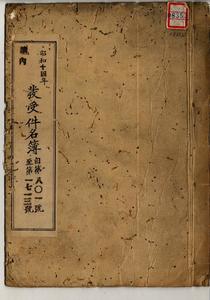 昭和十四年
管內
發受件名簿
自第八〇一號
至第一七一三號